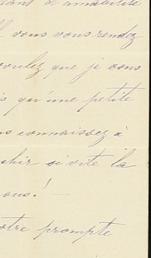 d'amabilité
vous vous rendez
voulez que je vous
qu'une petite
connaissez à
si vite la
vous!
votre prompte